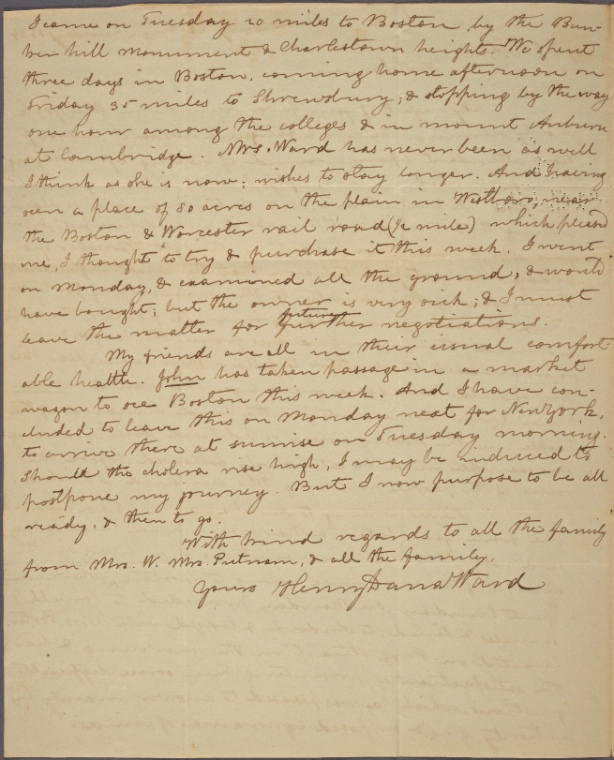 I came on Tuesday 20 miles to Boston by the Bun-
ker hill monument & Charlestown heights. We spent
three days in Boston, coming home afternoon on
Friday 35 miles to Shrewsbury, & stopping by the way
one hour among the colleges & in mount Auburn
at Cambridge. Mrs. Ward has never been as well
I think as she is now; wishes to stay longer. And having
seen a place of 80 acres on the plain in Westboro, near
the Boston & Worcester rail road (½ mile) which pleased
me, I thought to try & purchase it this week. I went
on Monday, & examined all the ground, & would
have bought; but the owner is very sick; & I must
leave the matter for future further negotiations.
My friends are all in their usual comfort-
able health. John has taken passage in a market
wagon to see Boston this week. And I have con-
cluded to leave this on Monday next for New York,
to arrive there at sunrise on Tuesday morning.
Should the cholera rise high, I may be induced to
postpone my journey. But I now purpose to be all
ready, & then to go.
With kind regards to all the family
from Mrs. W. Mrs. Putnam, & all the family.
Yours Henry Dana Ward